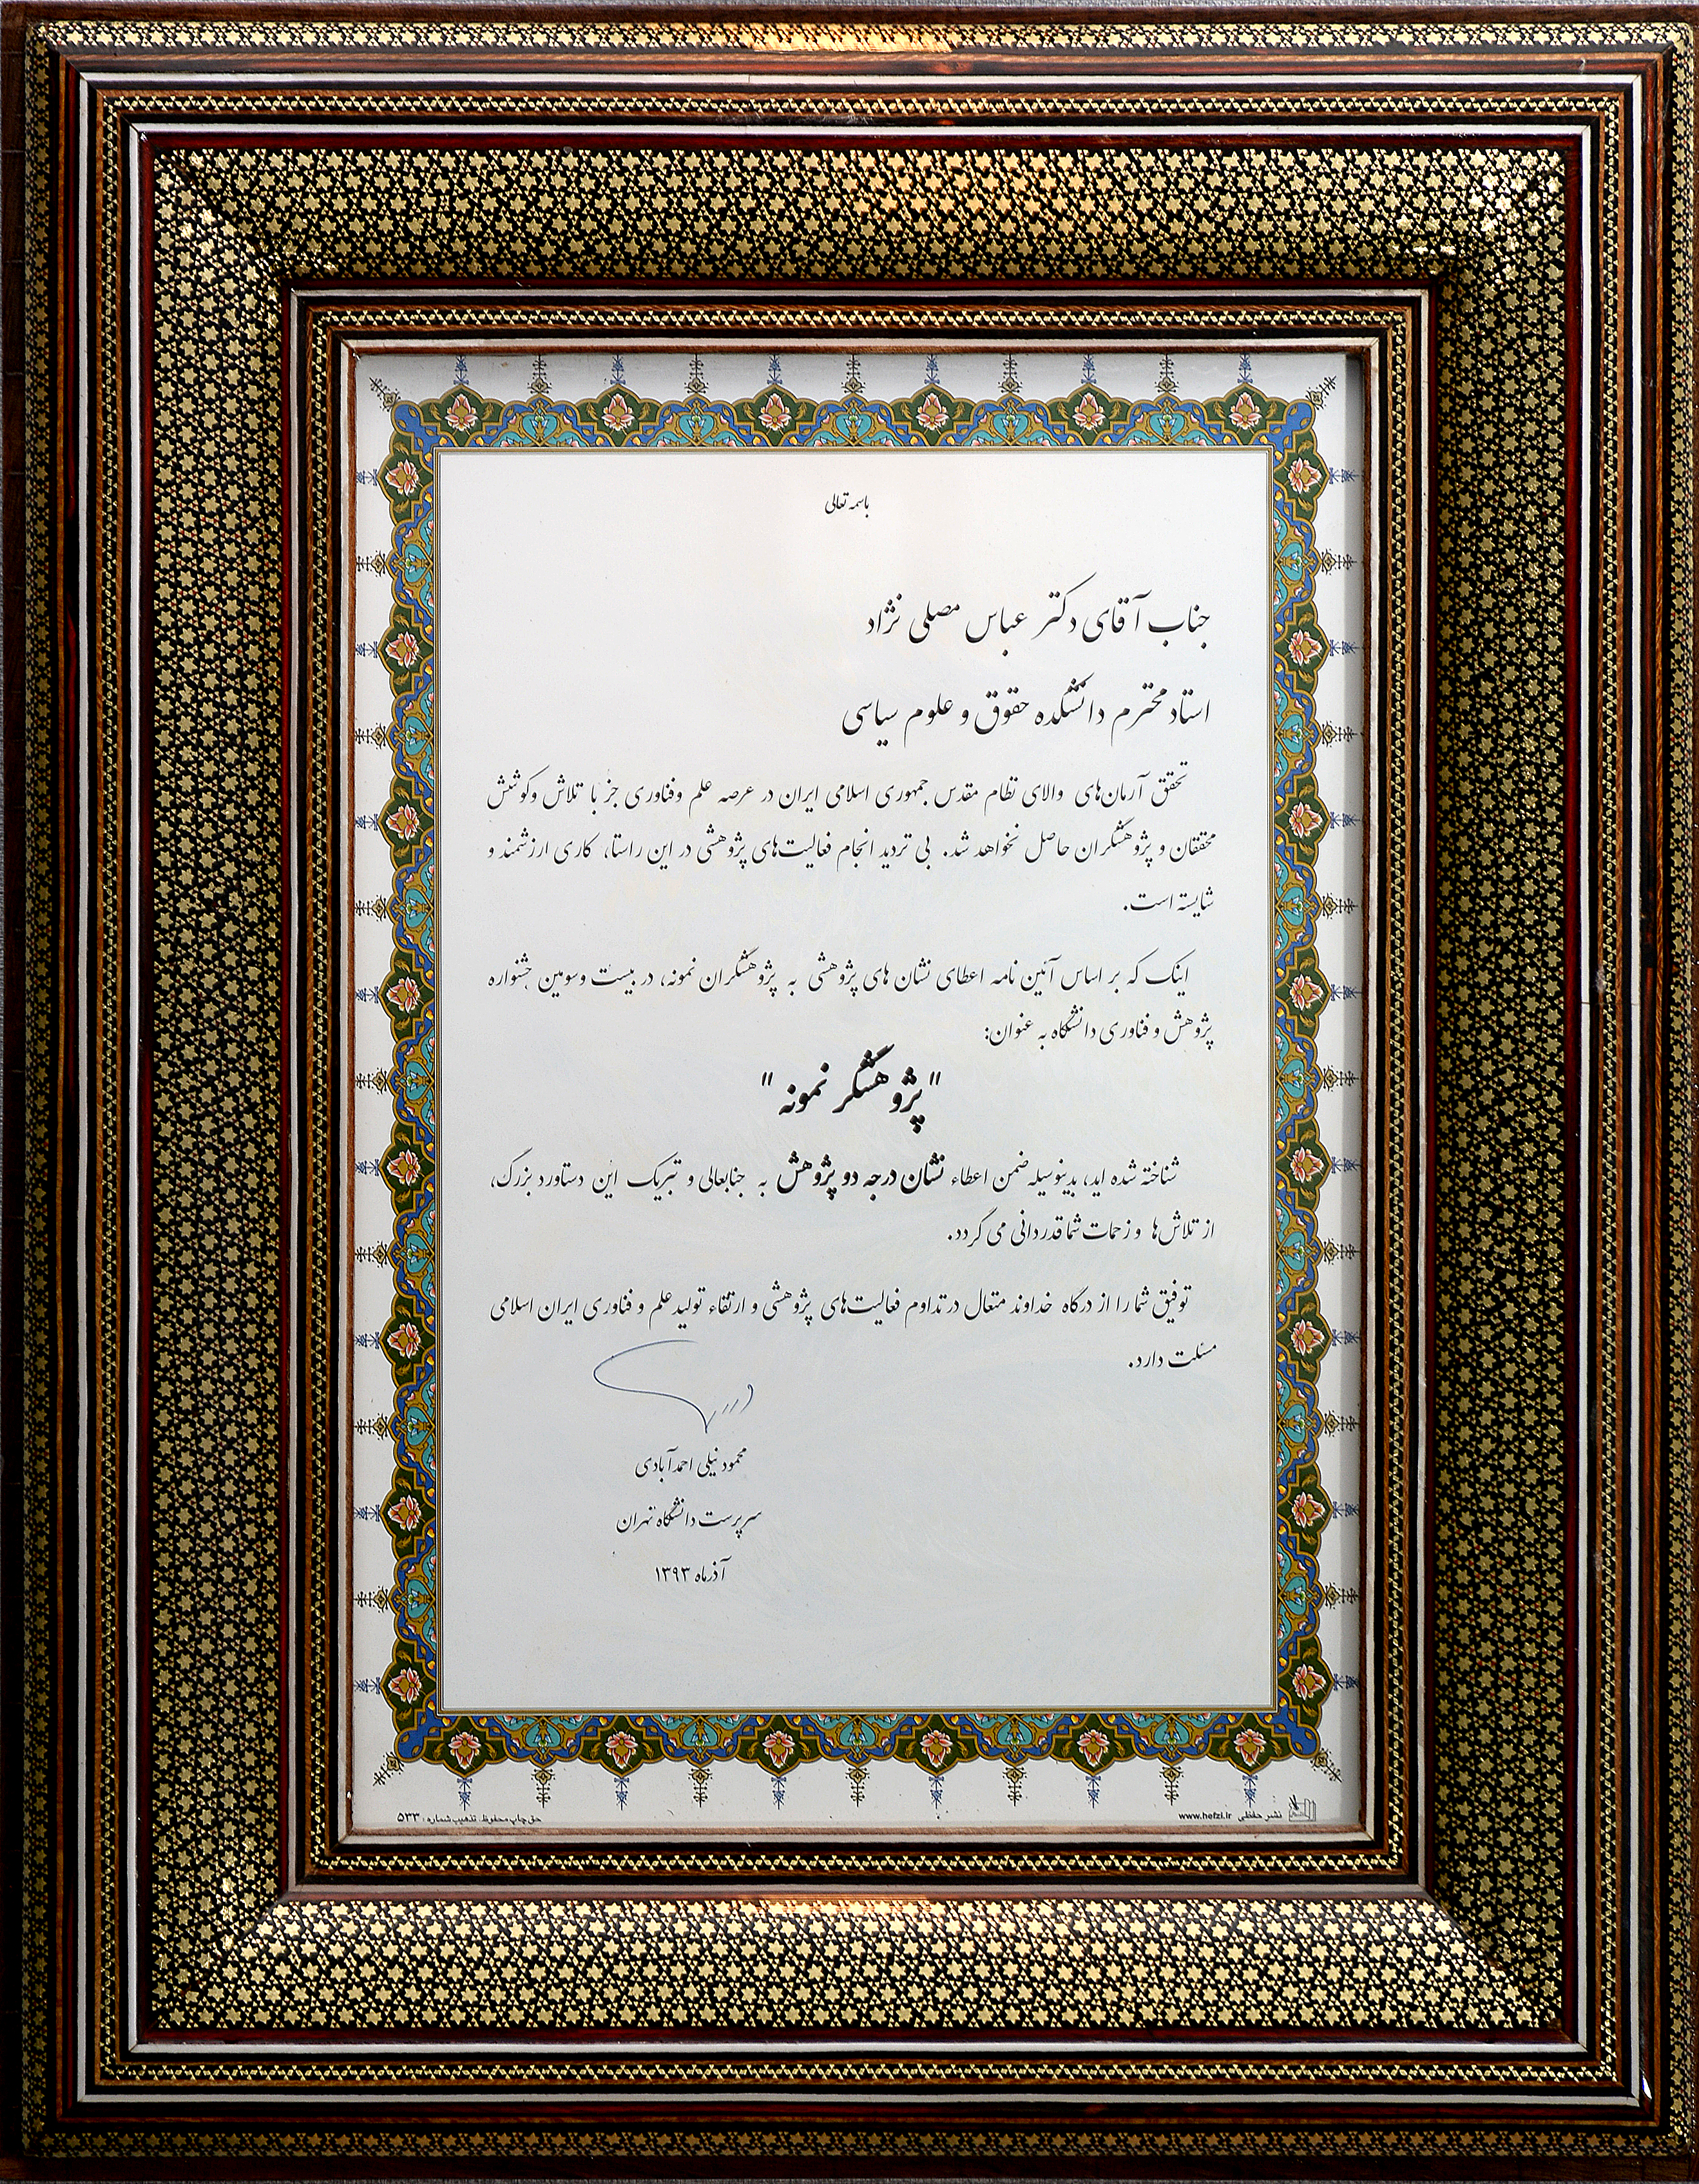 باسمه تعالی
جناب آقای دکتر عباس مصلی نژاد
استاد محترم دانشکده حقوق و علوم سیاسی
تحقق آرمان‌های والای نظام مقدس جمهوری اسلامی ایران در عرصه علم وفناوری جز با تلاش وکوشش
محققان و پژوهشگران حاصل نخواهد شد. بی تردید انجام فعالیت‌های پژوهشی در این راستا، کاری ارزشمند و
شایسته است.
اینک که بر اساس آئین نامه اعطای نشان های پژوهشی به پژوهشگران نمونه، در بیست وسومین جشنواره
پژوهش و فناوری دانشگاه به عنوان:
"پژوهشگر نمونه"
شناخته شده اید، بدینوسیله ضمن اعطاء نشان درجه دو پژوهش به جنابعالی و تبریک این دستاورد بزرگ،
از تلاش‌ها و زحمات شما قدردانی می گردد.
توفیق شما را از درگاه خداوند متعال در تداوم فعالیت‌های پژوهشی و ارتقاء تولید علم و فناوری ایران اسلامی
مسئلت دارد.
محمود نیلی احمدآبادی
سرپرست دانشگاه تهران
آذرماه ۱۳۹۳
نشر حفظی www.hefzi.ir
حق چاپ محفوظ. تذهیب شماره: ۵۳۳